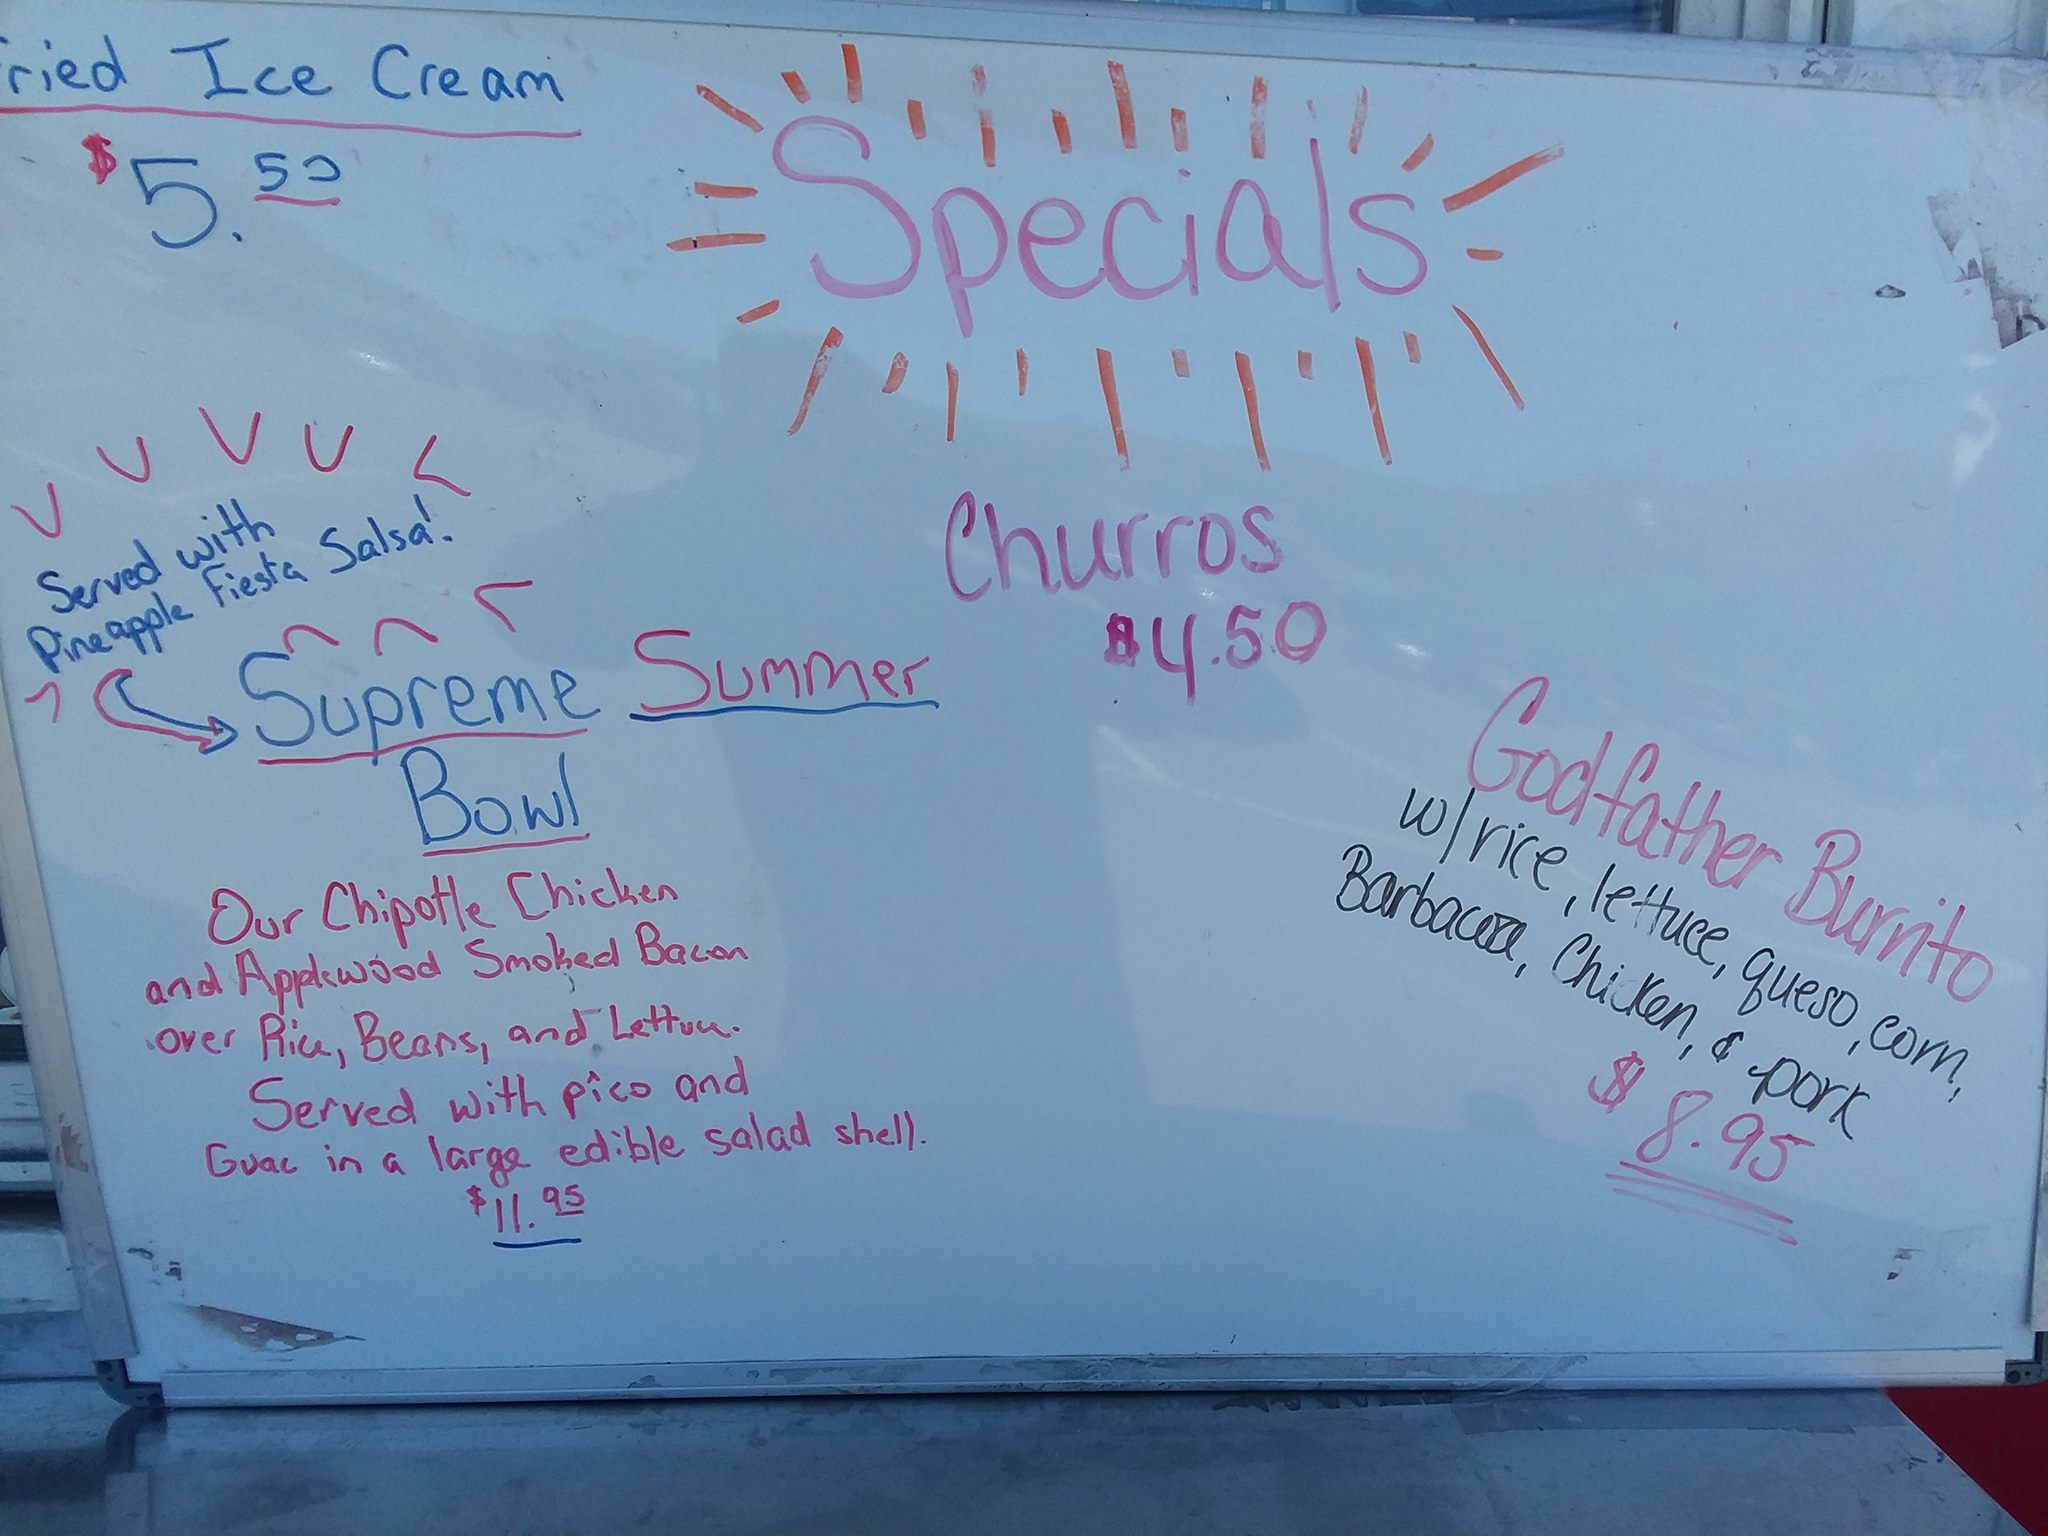 ried Ice Cream
$5.50
Specials
Served with
Pineapple Fiesta Salsa!
Supreme Summer
Bowl
Our Chipotle Chicken
and Applewood Smoked Bacon
over Rice, Beans, and Lettuce.
Served with pico and
Guac in a large edible salad shell.
$11.95
Churros
$4.50
Godfather Burrito
w/rice, lettuce, queso, corn,
Barbacoa, Chicken, & pork
$8.95